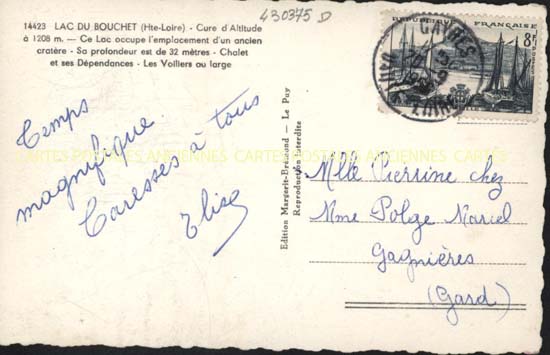 430375 D
14423 LAC DU BOUCHET (Hte-Loire) - Cure d'Altitude
à 1208 m. — Ce Lac occupe l'emplacement d'un ancien
cratère - Sa profondeur est de 32 mètres - Chalet
et ses Dépendances - Les Voiliers au large
Temps
magnifique.
Caresses à tous
Elise
Edition Margerit-Brémond — Le Puy
Reproduction interdite
CAYRES
HTE LOIRE
REPUBLIQUE FRANÇAISE
8F
Mlle Pierrine chez
Mme Polge Marcel
Gagnières
(Gard)
CARTES POSTALES ANCIENNES CARTES POSTALES ANCIENNES CARTES